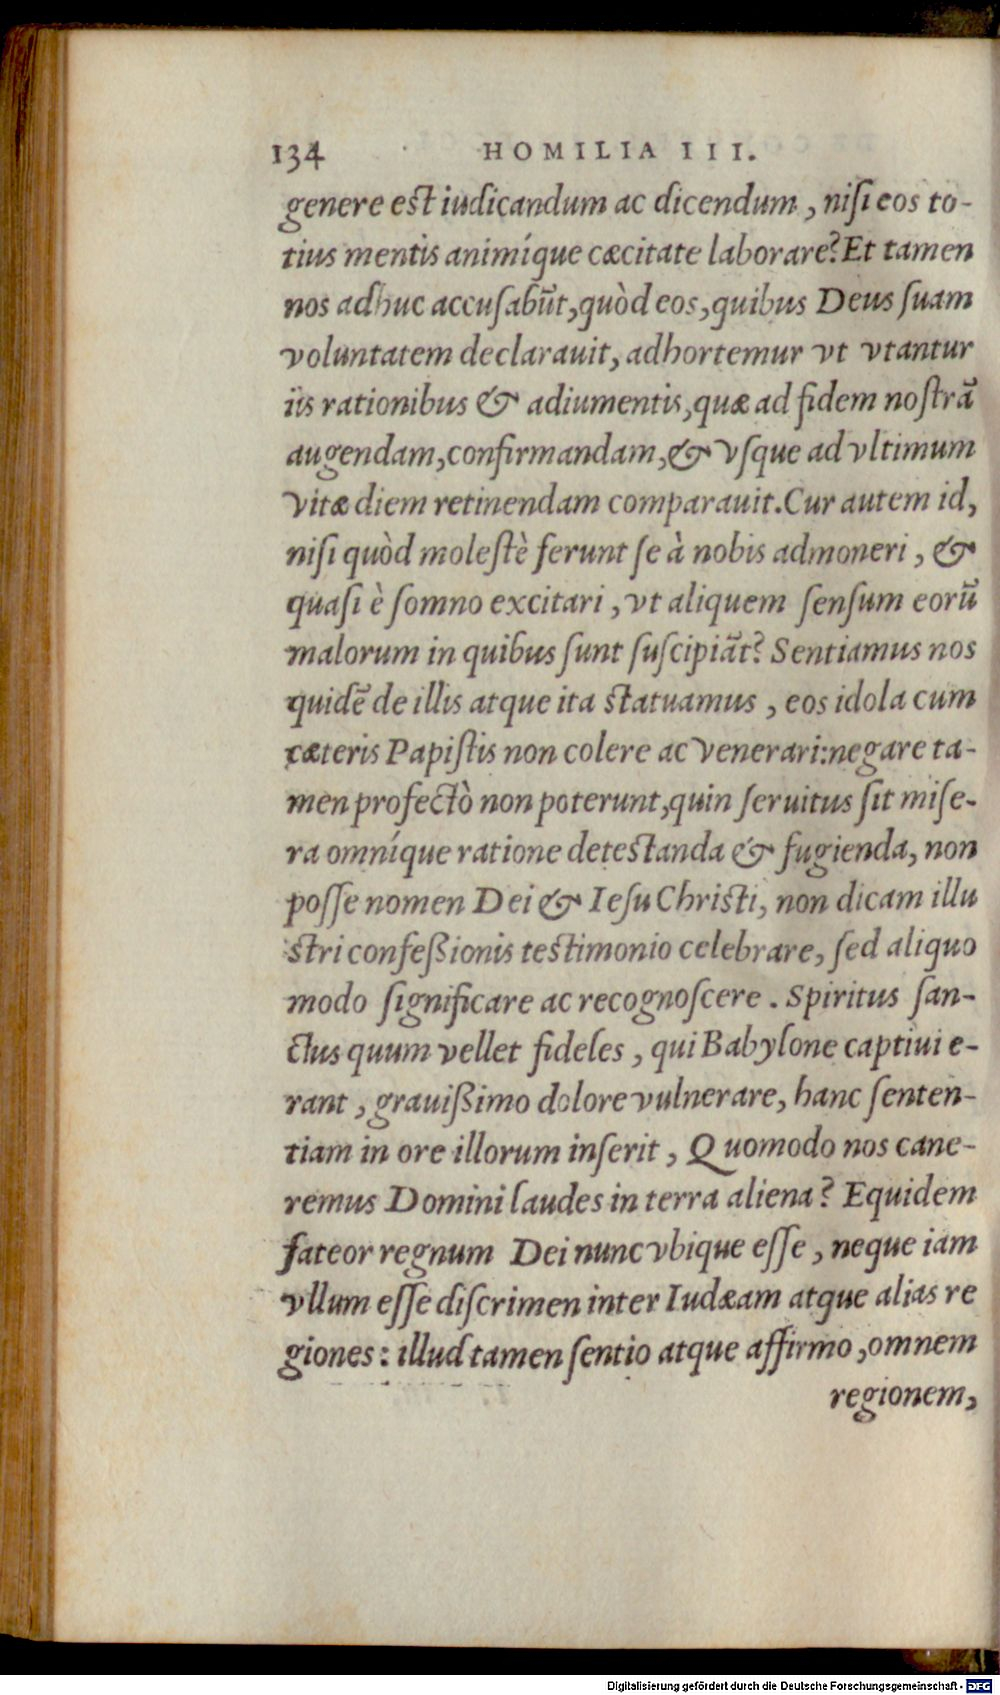 134 HOMILIA III.
genere est iudicandum ac dicendum, nisi eos to-
tius mentis animíque cæcitate laborare? Et tamen
nos adhuc accusabũt, quòd eos, quibus Deus suam
voluntatem declarauit, adhortemur vt vtantur
iis rationibus & adiumentis, quæ ad fidem nostrã
augendam, confirmandam, & vsque ad vltimum
vitæ diem retinendam comparauit. Cur autem id,
nisi quòd molestè ferunt se à nobis admoneri, &
quasi è somno excitari, vt aliquem sensum eorũ
malorum in quibus sunt suscipiãt? Sentiamus nos
quidẽ de illis atque ita statuamus, eos idola cum
cæteris Papistis non colere ac venerari: negare ta-
men profectò non poterunt, quin seruitus sit mise-
ra omníque ratione detestanda & fugienda, non
posse nomen Dei & Iesu Christi, non dicam illu
stri confeßionis testimonio celebrare, sed aliquo
modo significare ac recognoscere. Spiritus san-
ctus quum vellet fideles, qui Babylone captiui e-
rant, grauißimo dolore vulnerare, hanc senten-
tiam in ore illorum inserit, Quomodo nos cane-
remus Domini laudes in terra aliena? Equidem
fateor regnum Dei nunc vbique esse, neque iam
vllum esse discrimen inter Iudæam atque alias re
giones: illud tamen sentio atque affirmo, omnem
regionem,
Digitalisierung gefördert durch die Deutsche Forschungsgemeinschaft - DFG